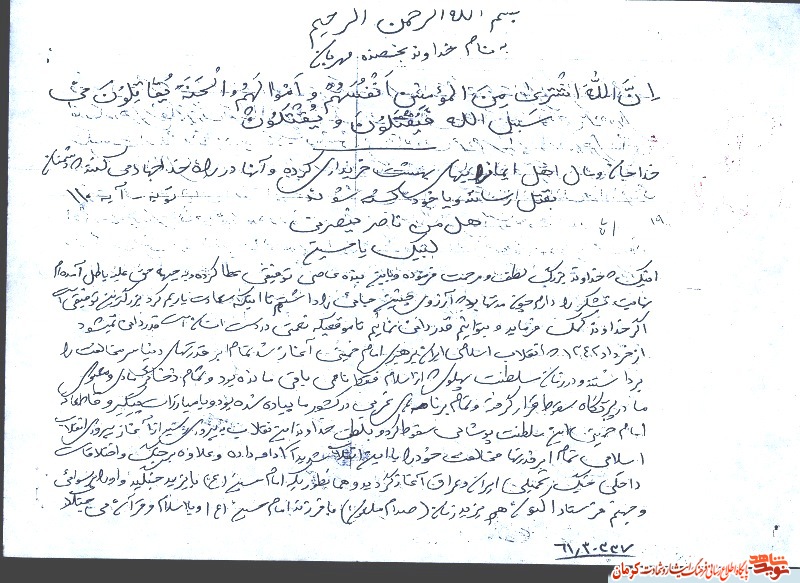 بسم الله الرحمن الرحیم
به نام خداوند بخشنده مهربان
اِنَّ اللهَ اشْتَرىٰ مِنَ الْمؤمنین اَنْفُسَهُمْ وَ اَمْوالَهُمْ الْجَنَّةَ یُقاتِلُونَ فی
سَبیلِ الله فَیَقْتُلُونَ وَ یُقْتَلُونَ
خدا جان و مال اهل ایمان را به بهای بهشت خریداری کرده و آنها در راه خدا جهاد می کنند که دشمنان
بقتل ارسانند و یا خود کشته شوند توبه - آیه ۱۱۰
هل من ناصر ینصرنی
لبیک یا حسین
اینک که خداوند بزرگ لطف و مرحمت فرموده و باین بنده عاصی توفیقی عطا کرده و به جبهه حق علیه باطل آمده‌ام
نهایت تشکر را دارم چون مدتها بود آرزوی چنین جایی را داشتم تا اینکه سعادت یارم کرد بزرگترین توفیقی
اگر خداوند کمک فرماید و بتوانیم قدردانی نمائیم تا موقعیکه نعمتی در دست انسان است قدردانی نمیشود
از خرداد ۱۳۴۲ که انقلاب اسلامی ایران برهبری امام خمینی آغاز شد تمام ابرقدرتهای دنیا سر مخالفت را
برداشتند و در زمان سلطنت پهلوی که از اسلام فقط نامی باقی مانده بود و تمام ذخائر مادی و معنوی
ما در پرتگاه سقوط قرار گرفته و تمام برنامه های غربی در کشور ما پیاده شده بود و با مبارزات پیگیر و قاطعانه
امام خمینی این سلطنت پوشالی سقوط کرد و بلطف خداوند این انقلاب به پیروزی رسید از آغاز پیروزی انقلاب
اسلامی تمام ابرقدرتها مخالفت خود را با این انقلاب جدید ادامه داده و علاوه بر جنگ و اختلافات
داخلی جنگ تحمیلی ایران و عراق آغاز گردید و همانطوریکه امام حسین (ع) با یزید جنگید و او را برسوائی
و جهنم فرستاد اکنون هم یزید زمان (صدام ملعون) با فرزند امام حسین (ع) و با اسلام و قرآن می جنگد
۶۱،۳۰۲۲۷
نوید شاهد
پایگاه اطلاع رسانی فرهنگ ایثار و شهادت کرمان